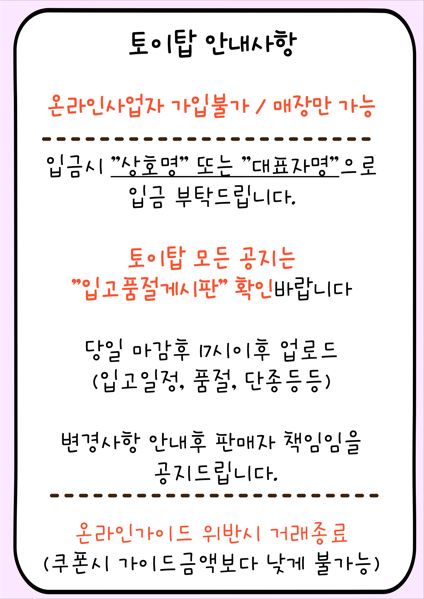 토이탑 안내사항
온라인사업자 가입불가 / 매장만 가능
입금시 "상호명" 또는 "대표자명"으로
입금 부탁드립니다.
토이탑 모든 공지는
"입고품절게시판" 확인바랍니다
당일 마감후 17시이후 업로드
(입고일정, 품절, 단종등등)
변경사항 안내후 판매자 책임임을
공지드립니다.
온라인가이드 위반시 거래종료
(쿠폰시 가이드금액보다 낮게 불가능)